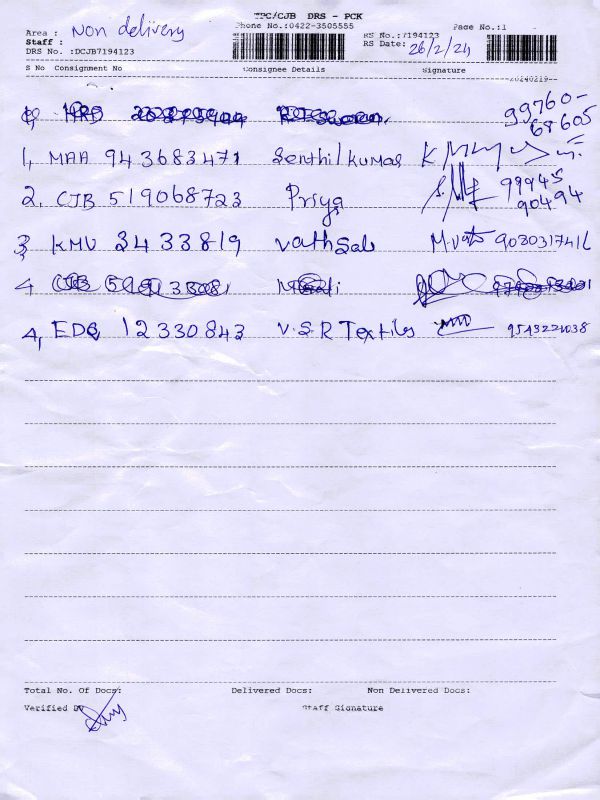 TPC/CJB DRS - PCK
Phone No.:0422-3505555 Page No.:1
Area : Non delivery
Staff :
RS No.:7194123
DRS No. :DCJB7194123 RS Date: 26/2/24
S No Consignment No Consignee Details Signature
20240219--
99760-
68605
1, MAA 943683471 Senthilkumar
2. CJB 519068723 Priya 99945
90494
3, KMU 3433819 Vathsal
4
4, EDG 12330843 V.S.R Textiles
Total No. Of Docs: Delivered Docs: Non Delivered Docs:
Verified By Staff Signature